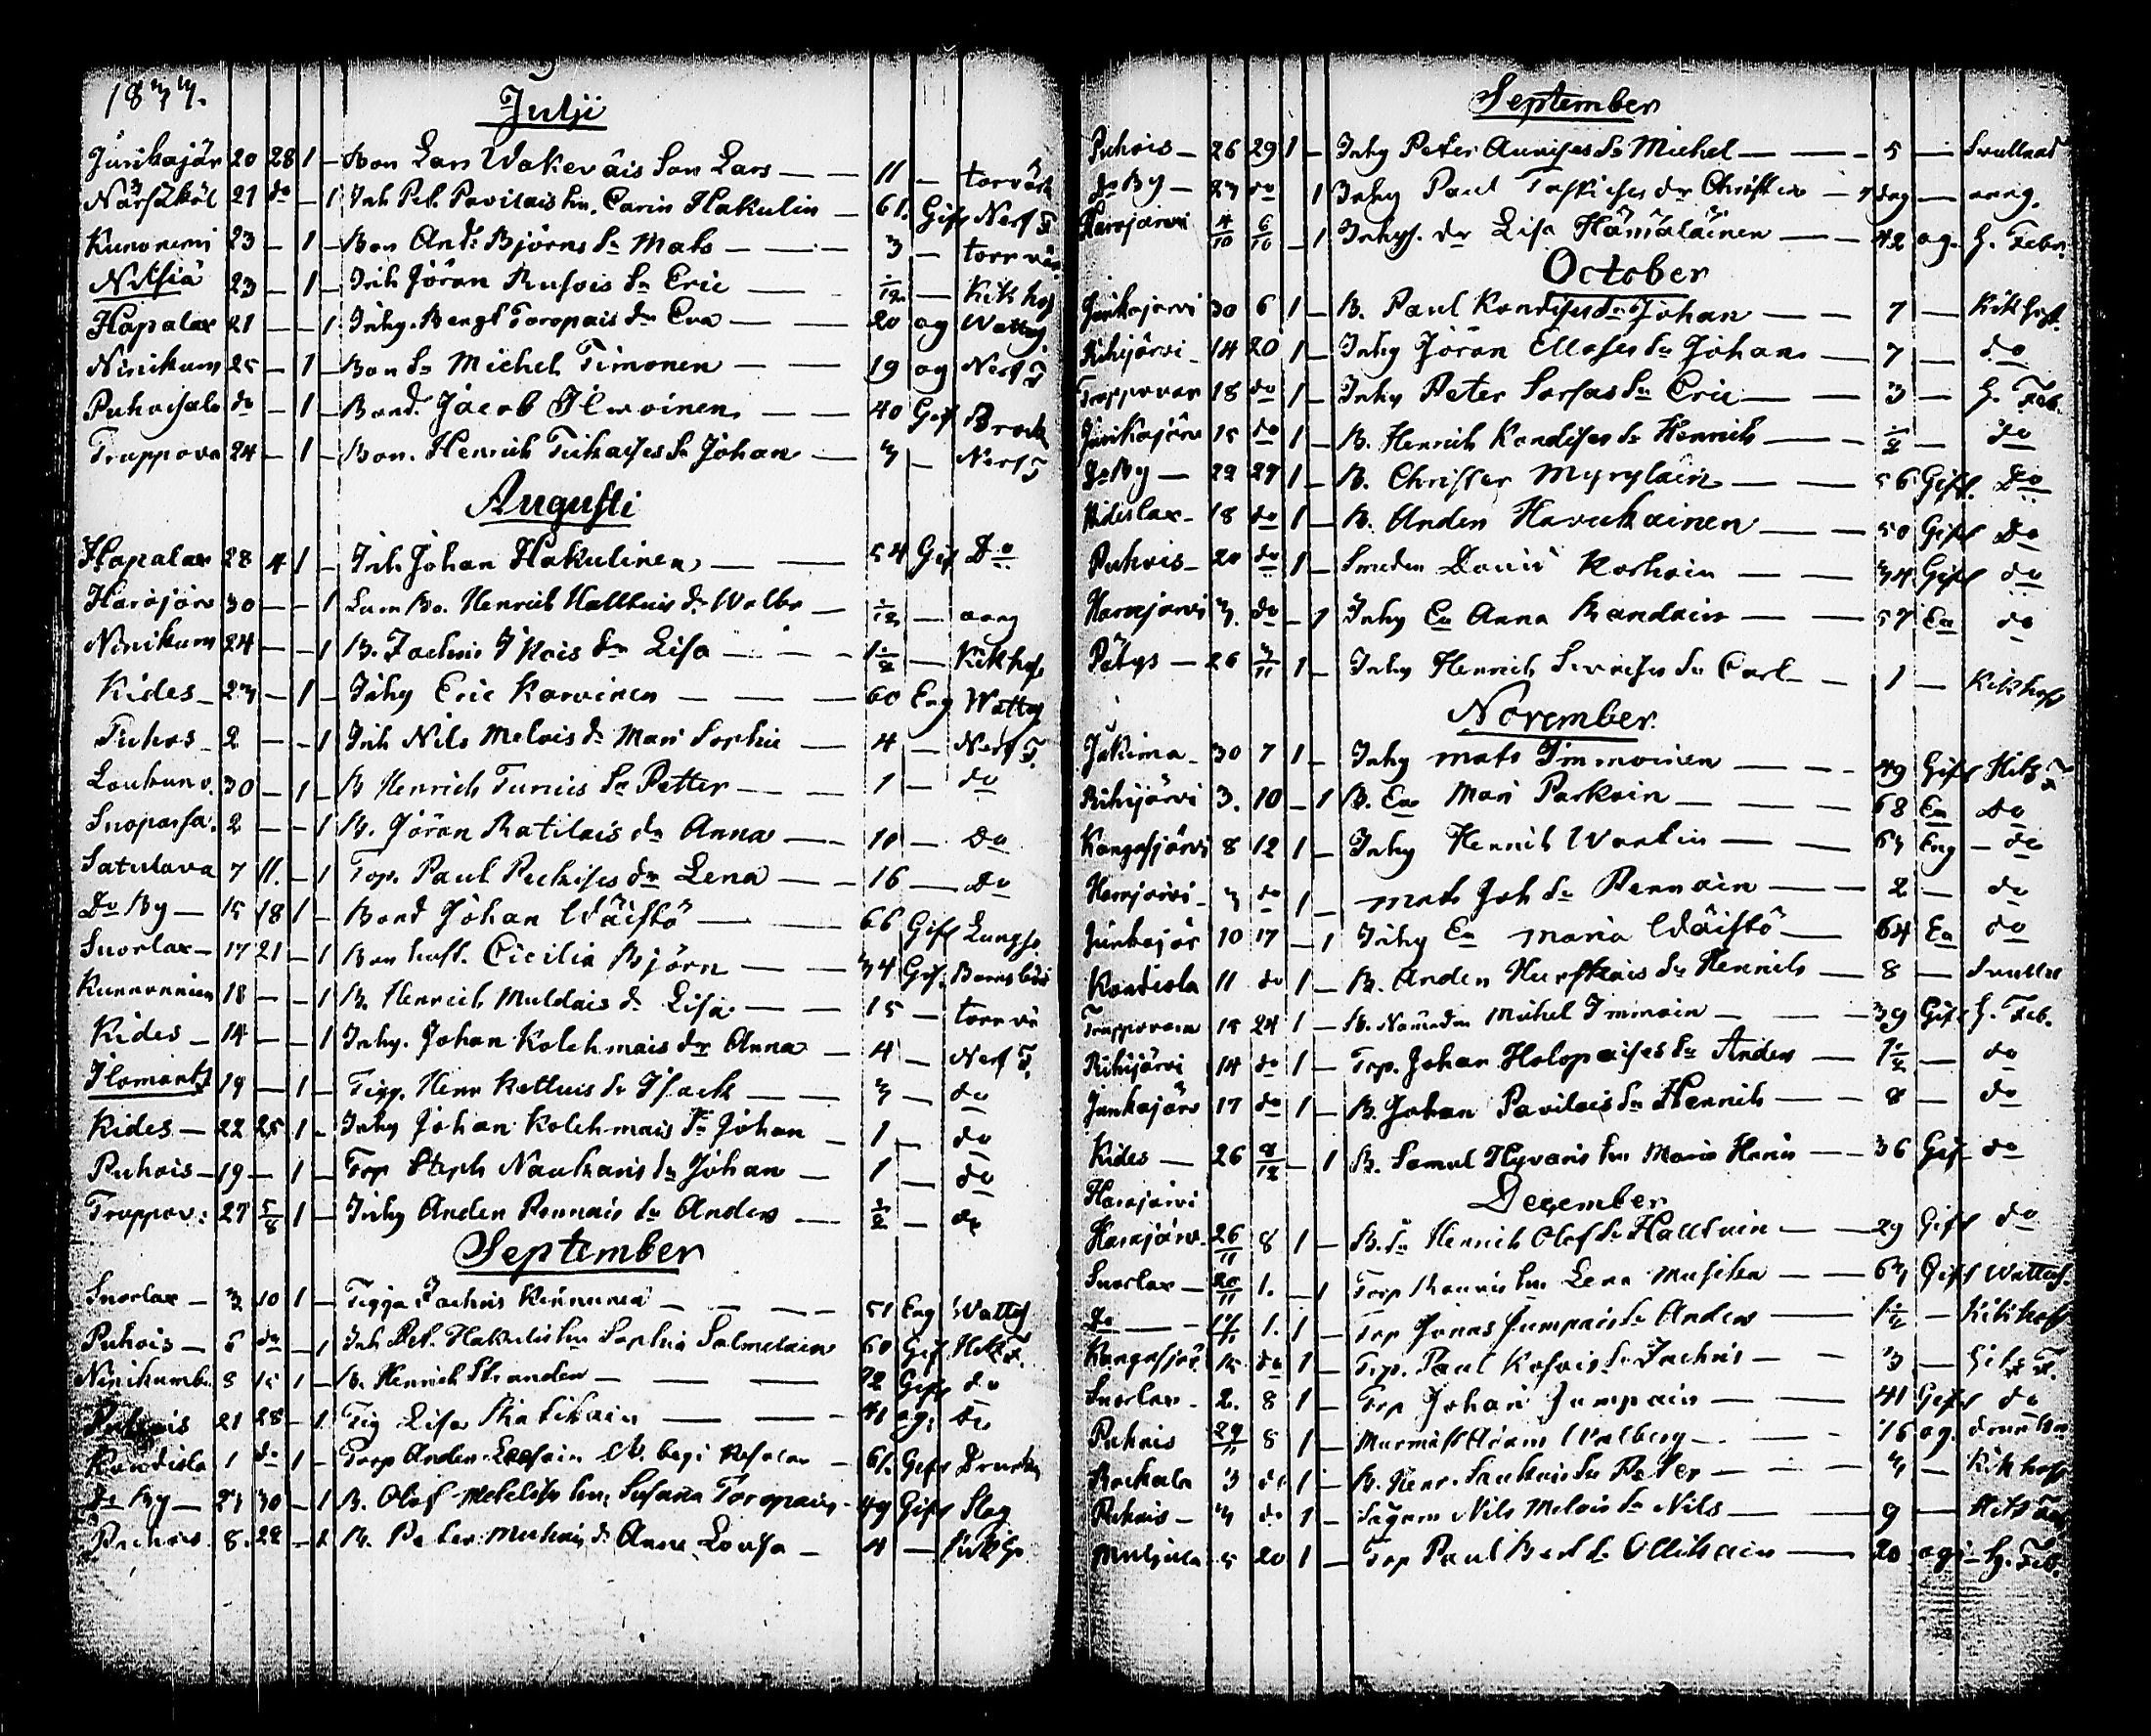 1833.
Julji
Junikajär 20 28 1 — Bon Lars Wakevâis Son Lars — — 11 — torrvärk
Närsäköl 21 do — 1 Inh Pet. Pavilais hu. Carin Hakulin — 61. Gift Nerf F
Kunonemi 23 — 1 — Bon And. Björns Sn Mats — — 3 — torrvär
Nilsiä 23 — 1 — Inh Jöran Rusois Sn Eric — 1/12 — Kikhos
Hapalax 21 — — 1 Inhy. Bengt Toropais dr Eva — — 20 og Wattus
Ninikum 25 — 1 — Bon Sn Michel Timonen — — 19 og Nerf F
Puhoisalo do — 1 — Bond. Jacob Ilwoinen — — 40 Gift Brock
Truppova 24 — 1 — Bon. Henrich Tiikaises Sn Johan — 3 — Nerf F
Augusti
Hapalax 28 4 1 — Inh Johan Hakulinen — — 54 Gif Do
Harajärv 30 — — 1 Henrich Halttuis dr Walbr — 1/12 — aang
Ninikum 24 — — 1 B. Zachris Ikois dr Lisa — — 1 1/2 — Kikhos
Kides — 23 — 1 — Inhy Eric Karvinen — — 60 Eng Wattus
Puhos — 2 — — 1 Inh Nils Melais dr Mari Sophie — 4 — Nerf F.
Loukunv. 30 — 1 — B Henrich Turuis Sn Petter — — 1 — do
Suoparsa. 2 — — 1 B. Jöran Ratilais dr Anna — — 10 — Do
Satulava 7 11. — 1 Torp. Paul Peckises dr Lena — — 16 — Do
Do By — 15 18 1 — Bond Johan Wäistö — 66 Gift Lungso
Suorlax — 17 21 — 1 Bon hust. Cicilia Björn — — 34 Gif. Barnsbör
Kunnonnien 18 — — 1 B. Henrich Muldais dr Lisa — — 15 — torrvä
Kides — 14 — — 1 Inhy. Johan Kolehmais dr Anna — 4 — Nerf F.
Ilomants 19 — 1 — Tigg. Henr Kettuis Sn Isack — — 3 — do
Kides — 22 25 1 — Inhy Johan Kolehmais Sn Johan — 1 — do
Puhois — 19 — 1 — Trp Steph Naukaris Sn Johan — 1 — do
Truppov: 27 5/8 1 — Inhy Anders Pennais Sn Anders — 1/2 — do
September
Suorlax — 3 10 1 — Tigga Zachris Kinnunen — — — 51 Eng Wattus
Puhois — 6 do — 1 Inh Pet. Hakulis hu Sophia Salmelain 60 Gif. Het F.
Ninikumb. 8 15 1 — B. Henrich Strander — — — 72 Gift do
Puhois 21 28 — 1 Tig Lisa Ratikain — — 41 og. do
Kondisla 1 do 1 — Torp Anders — 61. Gift Drunkn
Do By — 23 30 — 1 B. Olof hu. Susana Toropain — 49 Gift Slag
Puhois. 8. 28 — 1 B. Peter Muhois dr Anna Lovisa — 4 — Kikho
September
Puhois — 26 29 1 — Inhy Peter Auvises Sn Michel — — 5 —
Do By — 23 do 1 Inhy Paul dr Christin — 7 dag — aang.
Harajarvi 4/10 6/10 — 1 Inhys. dr Lisa Hämäläinen — — 42 og. H. Feber
October
Junkajarvi 30 6 1 — B. Paul Kondises Sn Johan — — 7 — Kikhost.
Rihijärvi — 14 20 1 — Inhy Jöran Ellases Sn Johan — 7 — do
Truppovar 18 do 1 — Inhy Peter Sorsas Sn Eric — — 3 — H. Feb.
Junikajärv 15 do 1 — B. Henrich Kondises Sn Henrich — — 1/2 — do
Do By — 22 27 1 — B. Christer Myrylain — — 56 Gift. Do
Kideslax — 18 do 1 — B. Anders Havukainen — — 50 Gift Do
Puhois — 20 do 1 — Smeden David Korhoin — — 34 Gift do
Harajarvi 3. do — 1 Inhy Ea Anna Randain — — 57 Ea do
Pötys — 26 3/11 1 — Inhy Henrich Sn Carl — — 1 — Kikhost
November
Jukima — 30 7 1 — Inhy Mats Immoinen — — 49 Gift Hits F
Rihijärvi 3. 10 — 1 B. Ea Mari Parkoin — — 68 Ea Do
Kangasjärvi 8 12 1 — Inhy Henrich Wartin — — 63 Eng — do
Harajarvi — 3 do 1 — Mats Joh Sn Pennain — — 2 — do
Junkajär 10 17 — 1 Inhy Ea Maria Wäistö — 64 Ea do
Kontiola 11 do 1 — B. Anders Hurskais Sn Henrich — 8 —
Truppovara 15 24 1 — Michel Immoin — — 39 Gift H. Feb.
Rihijärvi 14 do 1 — Trp. Johan Holopaises Sn Anders — 1 1/2 — do
Junkajärv 17 do 1 — B. Johan Pavilais Sn Henrich — — 8 — do
Kides — 26 8/12 — 1 B. Samul Hyvaris hu Maria — — 36 Gif do
Harajärvi
December
Harajärv. 26/11 8 1 — B. Sn Henrich Olof Sn Halttuin — 29 Gift do
Suorlax — 20/11 1. — 1 Trp hu Lena — — 63 Gift Wattus
Do — — 17/11 1. 1 — Trp Jonas Jumpais Sn Anders — 1 1/2 — Kikhost
Kangasjär. 15 do 1 — Trp. Paul Kosois Sn Zachris — — 3 — Hits F.
Suorlax — 2. 8 1 — Trp Johan Jumpain — — 41 Gift do
Puhois 29/11 8 1 — Adam Walberg — — 16 og.
3 do 1 — B. Henr. Sn Peter — — 3 — Kikhost
Puhois — 3 do 1 — Nils Melais Sn Nils — — 9 —
Muljula 5 20 1 — Trp Paul Ollikain — 20 ogi — H. Feb.